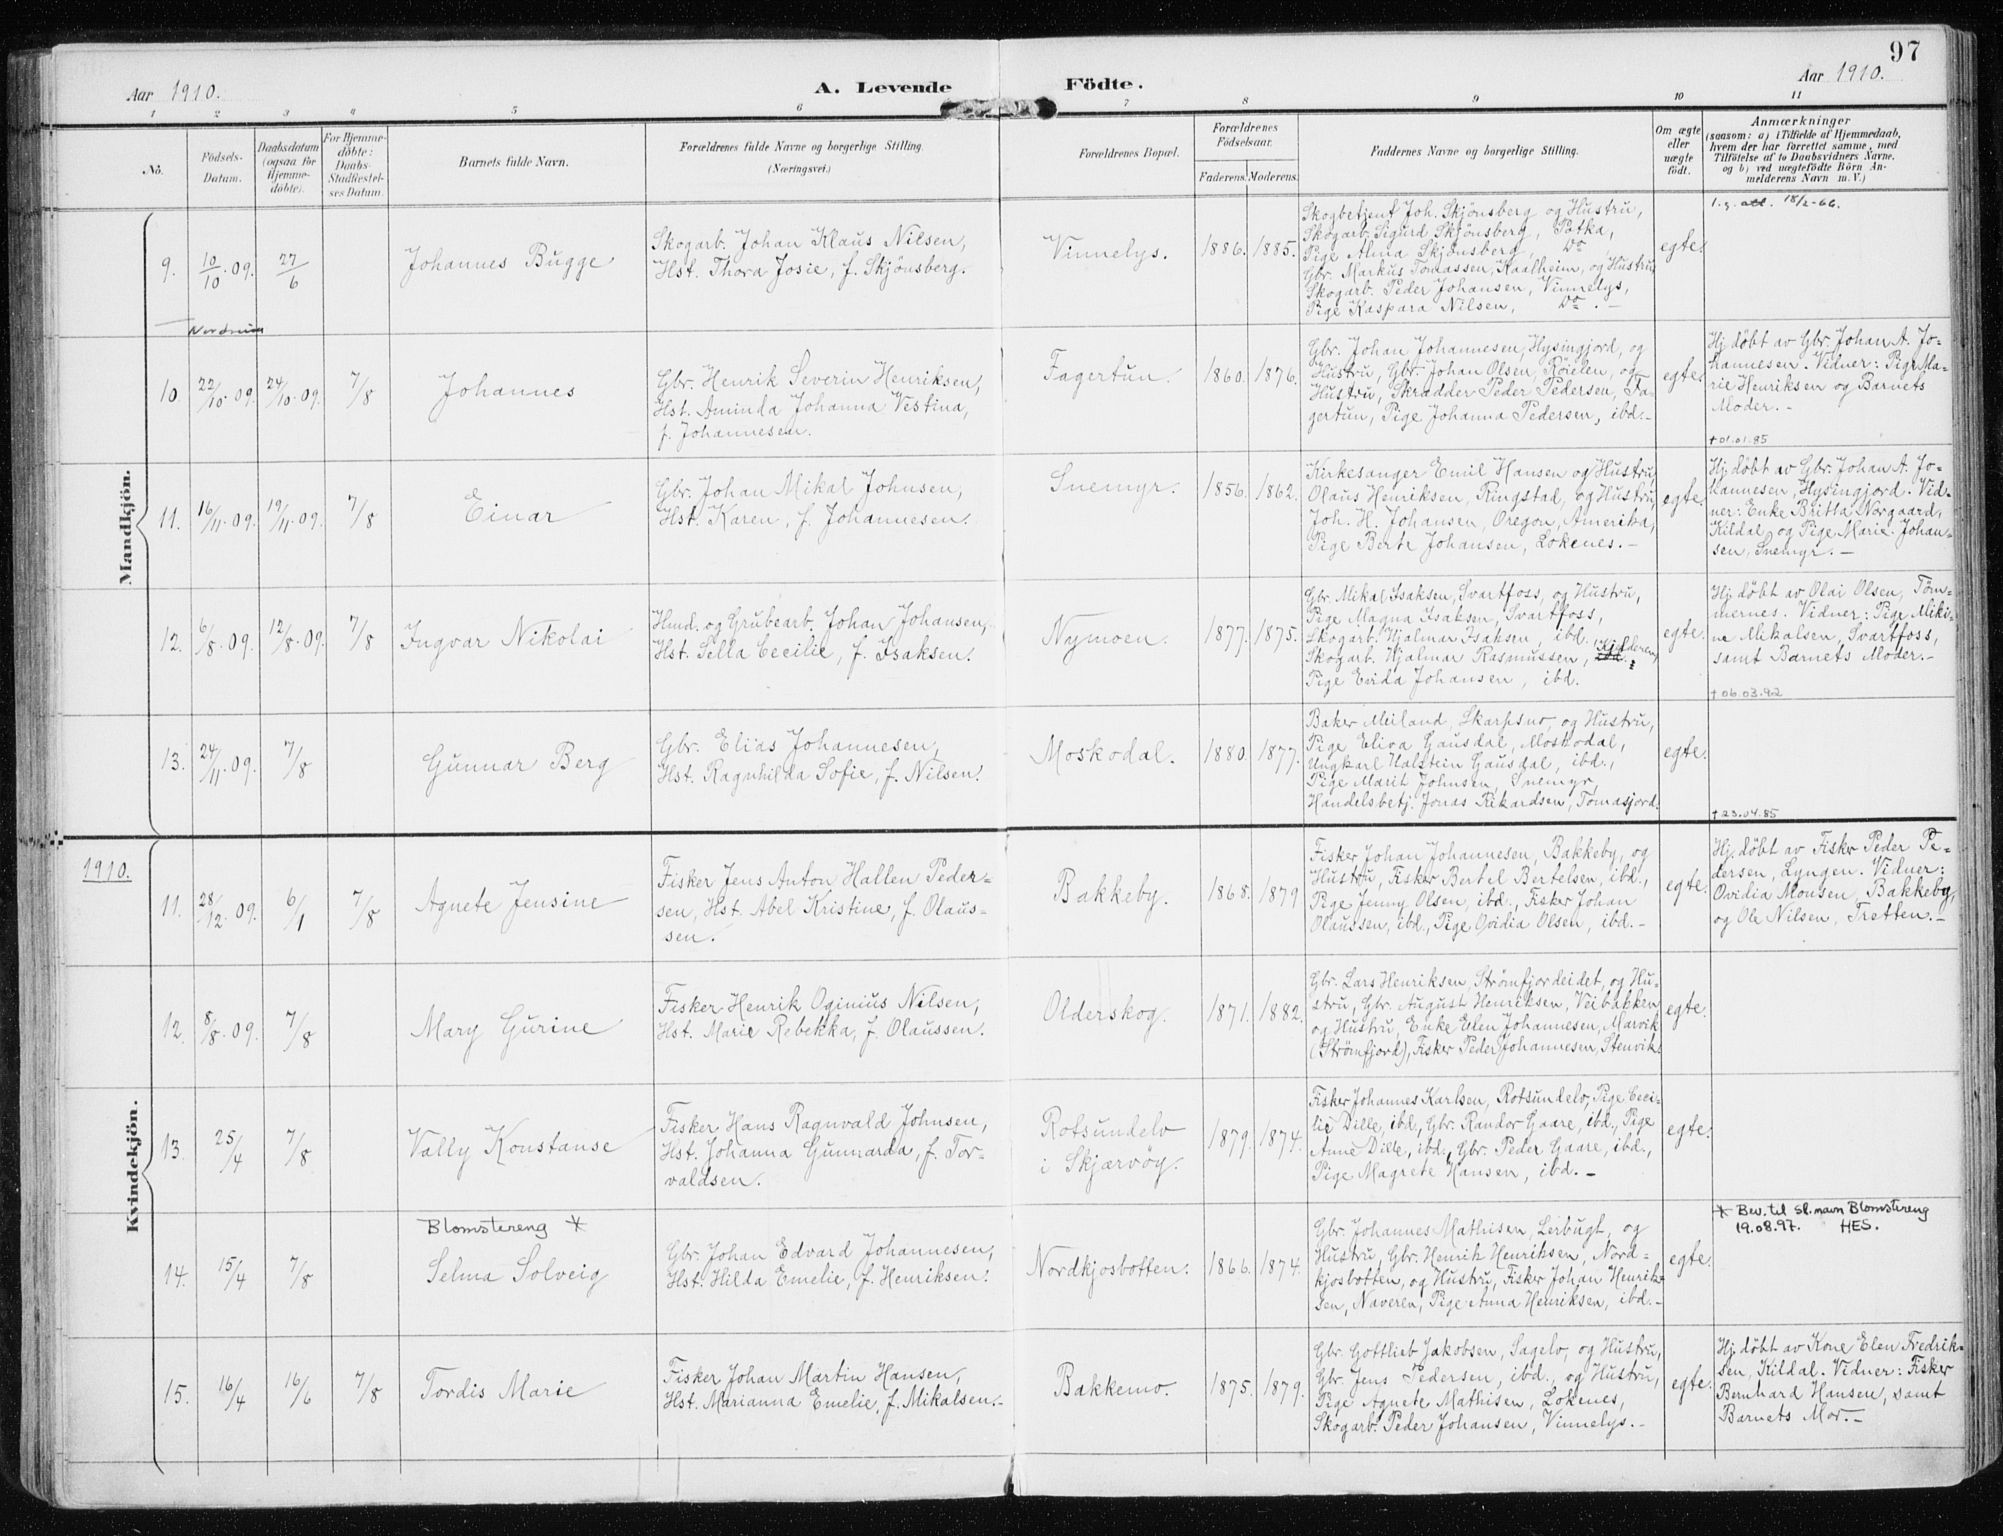 97
Aar 1910.
A. Levende Födte.
Aar 1910.
1 2 3 4 5 6 7 8 9 10 11
No.
Födsels-
Datum.
Daabsdatum
(ogsaa for
Hjemme-
döbte).
For Hjemme-
döbte:
Daabs-
Stadfæstel-
ses Datum.
Barnets fulde Navn.
Forældrenes fulde Navne og borgerlige Stilling.
(Næringsvei.)
Forældrenes Bopæl.
Forældrenes
Födselsaar.
Faderens. Moderens.
Faddernes Navne og borgerlige Stilling.
Om ægte
eller
uægte
födt.
Anmærkninger
(saasom: a) i Tilfælde af Hjemmedaab,
hvem der har forrettet samme, med
Tilföielse af to Daabsvidners Navne,
og b) ved uægtefödte Börn An-
melderens Navn m. V.)
Mandkjön.
9.
10/10 · 09.
27/6
Johannes Bugge
Skogarb. Johan Klaus Nilsen,
Hst. Thora Josie, f. Skjönsberg.
Vinnelys.
1886. 1885.
Skogbetjent Joh. Skjönsberg og Hustru,
Skogarb. Sigurd Skjönsberg, Potka,
Pige Alma Skjönsberg, Do
Gbr. Markus Tomassen, Kaalheim, og Hustru
Skogarb. Peder Johansen, Vinnelys,
Pige Kaspara Nilsen, Do. -
egte.
18/2-66.
10.
22/10 · 09.
24/10 · 09.
7/8
Johannes
Gbr. Henrik Severin Henriksen,
Hst. Aminda Johanna Vestina,
f. Johannesen.
Fagertun
1860. 1876.
Gbr. Johan Johannesen, Hysingjord, og
Hustru, Gbr. Johan Olsen, Röielen, og
Hustru, Skrædder Peder Pedersen, Fa-
gertun, Pige Johanna Pedersen, ibd.-
egte.
Hj. döbt av Gbr. Johan A. Jo-
hannesen. Vidner: Pige Ma-
rie Henriksen og Barnets
Moder.-
†01.01.85
11.
16/11 · 09.
19/11 · 09.
7/8
Einar
Gbr. Johan Mikal Johnsen,
Hst. Karen, f. Johannesen.
Snemyr.
1856. 1862.
Kirkesanger Emil Hansen og Hustru,
Olaus Henriksen, Ringstad, og Hustru,
Joh. H. Johansen, Oregon, Amerika,
Pige Berte Johansen, Lökenes.-
egte.
Hj. döbt av Gbr. Johan A. Jo-
hannesen, Hysingjord. Vid-
ner: Enke Britta Nergaard,
Kildal og Pige Marie Johan-
sen, Snemyr.-
12.
6/8 · 09.
12/8 · 09.
7/8
Ingvar Nikolai
Hmd. og Grubearb. Johan Johansen,
Hst. Sella Cecilie, f. Isaksen.
Nymoen
1877. 1875.
Gbr. Mikal Isaksen, Svartfoss, og Hustru,
Pige Magna Isaksen, Svartfoss,
Skogarb. Hjalmar Isaksen, ibd.
Skogarb. Hjalmar Rasmussen,
Pige Evida Johansen, ibd.
egte.
Hj. döbt av Olai Olsen, Töm-
mernes. Vidner: Pige Miki-
ne Mikalsen, Svartfoss,
samt Barnets Moder.-
†06.03.92
13.
24/11 · 09.
7/8
Gunnar Berg
Gbr. Elias Johannesen,
Hst. Ragnhilda Sofie, f. Nilsen.
Moskodal.
1880. 1877.
Baker Meiland, Skarpsno, og Hustru,
Pige Eliva Gausdal, Moskodal,
Ungkarl Halstein Gausdal, ibd.,
Pige Marit Johnsen, Snemyr,
Handelsbetj. Jonas Rikardsen, Tomasjord.
egte.
†23.04.85
1910.
Kvindekjön.
11.
28/12 · 09.
6/1
7/8
Agnete Jensine
Fisker Jens Anton Hallen Peder-
sen, Hst. Abel Kristine, f. Olaus-
sen.
Bakkeby.
1868. 1879
Fisker Johan Johannesen, Bakkeby, og
Hustru, Fisker Bertel Bertelsen, ibd.,
Pige Jenny Olsen, ibd., Fisker Johan
Olaussen, ibd., Pige Ovidia Olsen, ibd.-
egte.
Hj. döbt av Fisker Peder Pe-
dersen, Lyngen. Vidner:
Ovidia Monsen, Bakkeby,
og Ole Nilsen, Tretten.-
12.
8/8 · 09.
7/8
Mary Gurine
Fisker Henrik Oginius Nilsen,
Hst. Marie Rebekka, f. Olaussen.
Olderskog.
1871. 1882.
Gbr. Lars Henriksen, Strömfjordeidet, og Hu-
stru, Gbr. August Henriksen, Veibakken
og Hustru, Enke Elen Johannesen, Marvik
(Strömfjord), Fisker Peder Johannesen, Stenvik.
egte.
13.
25/4
7/8
Vally Konstanse
Fisker Hans Ragnvald Johnsen,
Hst. Johanna Gunnarda, f. Tor-
valdsen.
Rotsundelv
i Skjærvöy.
1879. 1874.
Fisker Johannes Karlsen, Rotsundelv, Pige Ceci-
lie Dille, ibd., Gbr. Randor Gaare, ibd., Pige
Anne Dille, ibd., Gbr. Peder Gaare, ibd.,
Pige Magrete Hansen, ibd.-
egte.
14.
15/4
7/8
Blomstereng *
Selma Solveig
Gbr. Johan Edvard Johannesen,
Hst. Hilda Emelie, f. Henriksen.
Nordkjosbotten.
1866. 1874.
Gbr. Johannes Mathisen, Lerbugt, og
Hustru, Gbr. Henrik Henriksen, Nord-
kjosbotten, og Hustru, Fisker Johan Henrik-
sen, Naveren, Pige Anna Henriksen, ibd.-
egte.
* Bev. til sl.navn Blomstereng
19.08.97. HES.
15.
16/4
16/6
7/8
Tordis Marie
Fisker Johan Martin Hansen,
Hst. Marianna Emelie, f. Mikalsen.-
Bakkemo.
1875. 1879.
Gbr. Gottlieb Jakobsen, Sagelv, og Hustru,
Gbr. Jens Pedersen, ibd., og Hustru,
Pige Agnete Mathisen, Lökenes,
Skogarb. Peder Johansen, Vinnelys.-
egte.
Hj. döbt av Kone Elen Fredrik-
sen, Kildal. Vidner: Fisker
Bernhard Hansen, samt
Barnets Mor.-